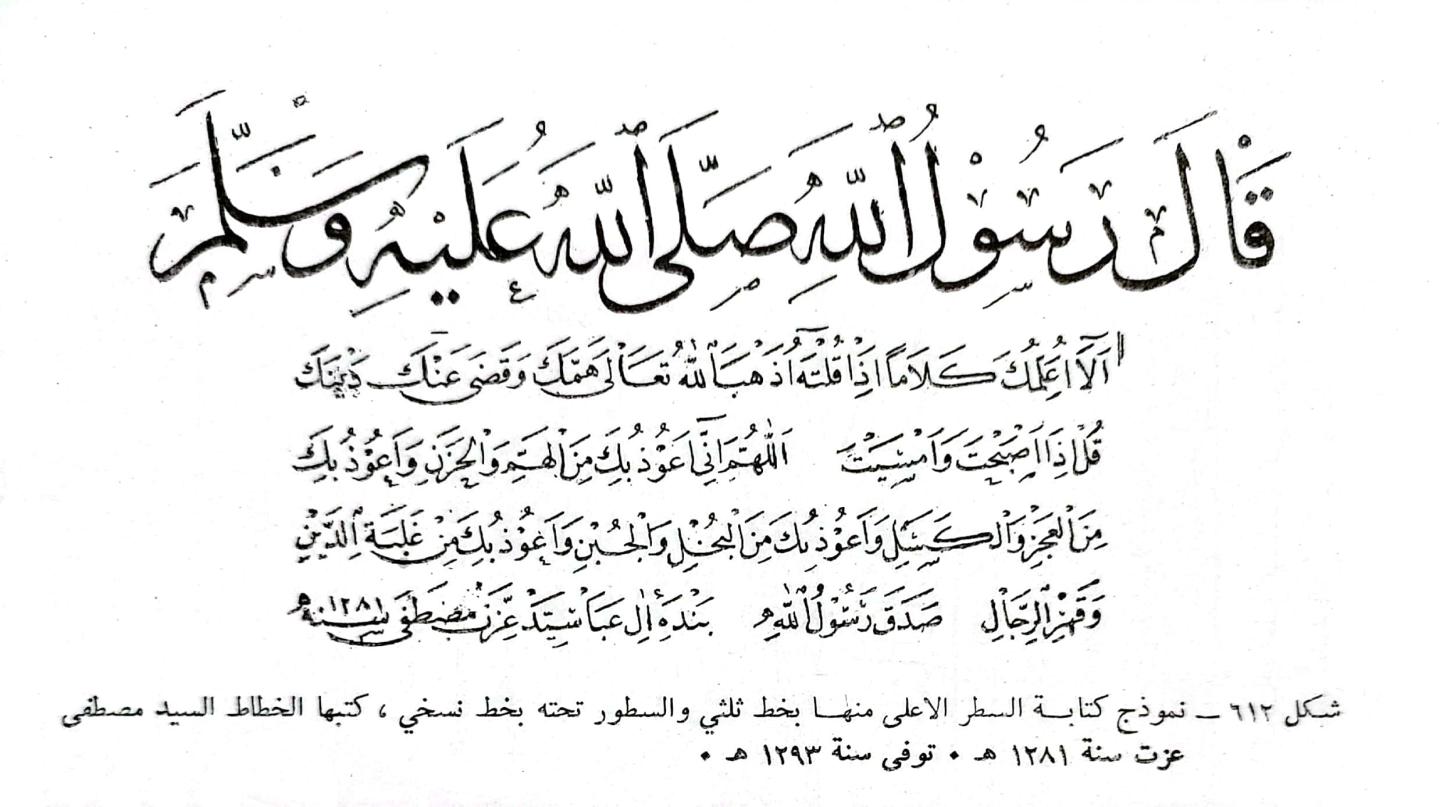 قَالَ رَسُوْلُ اللّٰهِ صَلَّى اللّٰهُ عَلَيْهِ وَسَلَّمَ
اَلَآ اُعَلِّمُكَ كَلَامًا اِذَا قُلْتَهُ اَذْهَبَ اللّٰهُ تَعَالٰى هَمَّكَ وَقَضٰى عَنْكَ دَيْنَكَ
قُلْ اِذَا اَصْبَحْتَ وَاَمْسَيْتَ اَللّٰهُمَّ اِنِّىٓ اَعُوْذُ بِكَ مِنَ الْهَمِّ وَالْحَزَنِ وَاَعُوْذُ بِكَ
مِنَ الْعَجْزِ وَالْكَسَلِ وَاَعُوْذُ بِكَ مِنَ الْبُخْلِ وَالْجُبْنِ وَاَعُوْذُ بِكَ مِنْ غَلَبَةِ الدَّيْنِ
وَقَهْرِ الرِّجَالِ صَدَقَ رَسُوْلُ اللّٰهِ بَنْدَهٔ اٰلِ عَبَا سَيِّدْ عِزَّتْ مُصْطَفٰى سنه ١٢٨١
شكل ٦١٢ ــ نموذج كتابـــة السطر الاعلى منهـــا بخط ثلثي والسطور تحته بخط نسخي ، كتبها الخطاط السيد مصطفى
عزت سنة ١٢٨١ هـ ٠ توفى سنة ١٢٩٣ هـ ٠